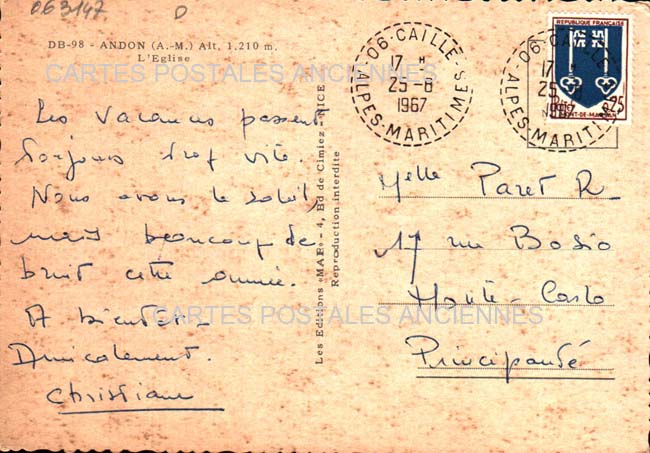 063147
D
DB-98 - ANDON (A.-M.) Alt. 1.210 m.
L'Eglise
CARTES POSTALES ANCIENNES
Les vacances passent
toujours trop vite.
Nous avons le soleil,
mais beaucoup de
bruit cette année.
A bientôt -
Amicalement.
Christiane
Les Editions «MAR» - 4, Bd de Cimiez - NICE
Reproduction interdite
06-CAILLE
17 H
25-8
1967
ALPES-MARITIMES
REPUBLIQUE FRANÇAISE
0,25
MONT-DE-MARSAN
06-CAILLE
17
25
ALPES-MARITIMES
Melle Paret R.
17 rue Bosio
Monte-Carlo
Principauté
CARTES POSTALES ANCIENNES